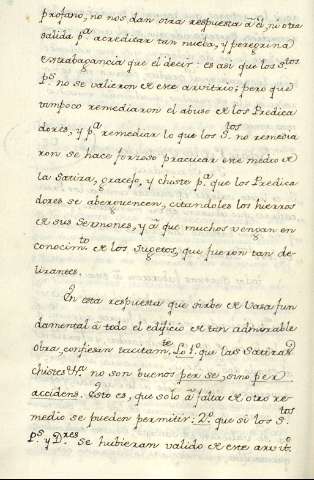 profano; no nos dan otra respuesta à èl, ni otra
salida pª acreditar tan nueba, y peregrina
extrabagancia que el decir: es asi que los Stos
Ps. no se valieron de este arvitrio; pero que
tampoco remediaron el abuso de los Predica
dores, y pª remediar lo que los Stos no remedia
ron se hace forzoso practicar este medio de
la Satira, gracejo, y chiste pª que los Predica
dores se aberguencen, citandoles los hierros
de sus Sermones, y à que muchos vengan en
conocimto de los sugetos, que fueron tan de-
lirantes.
En esta respuesta que sirbe de vasa fun
damental à todo el edificio de tan admirable
obra, confiesan tacitamte. Lo 1º que las Satiras
chistes &ª no son buenos per se, sino per
accidens. Esto es, que solo à falta de otro re-
medio se pueden permitir: 2º que si los Stos
Ps. y Dres se hubieran valido de este arvitº